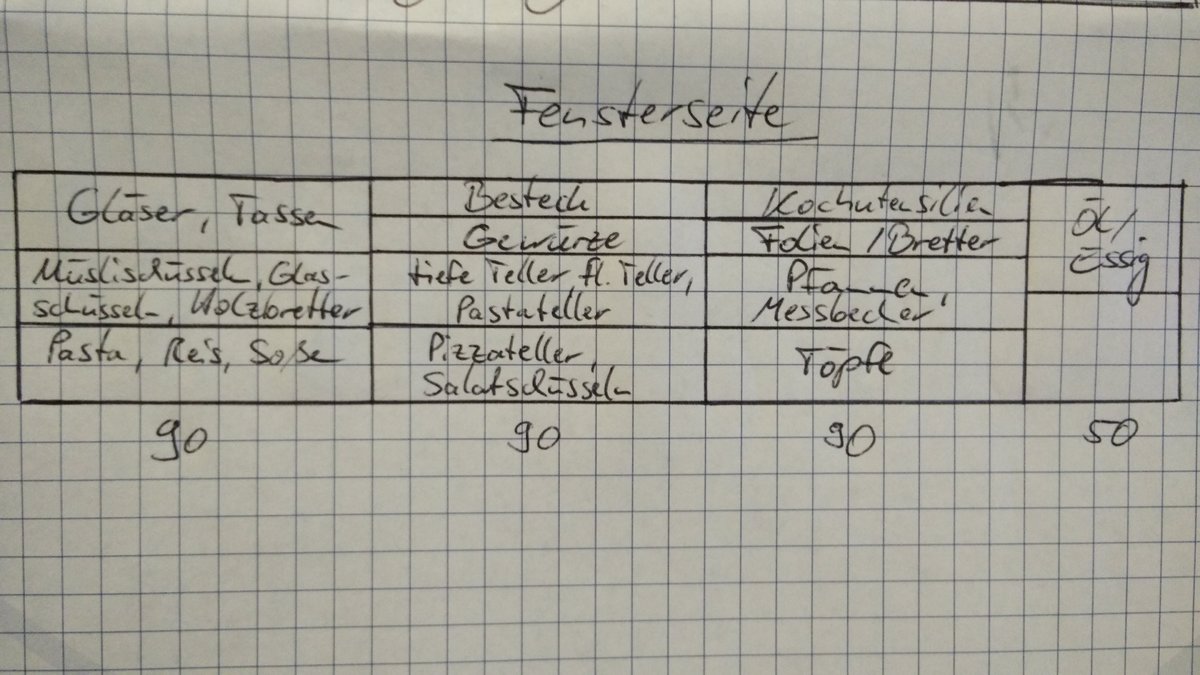 Fensterseite
Gläser, Tassen
Müslischüsseln, Glas-
schüsseln, Holzbretter
Pasta, Reis, Soße
90
Besteck
Gewürze
tiefe Teller fl. Teller,
Pastateller
Pizzateller,
Salatschüsseln
90
Kochutensilien
Folien / Bretter
Pfannen,
Messbecher
Töpfe
90
Öl /
Essig
50